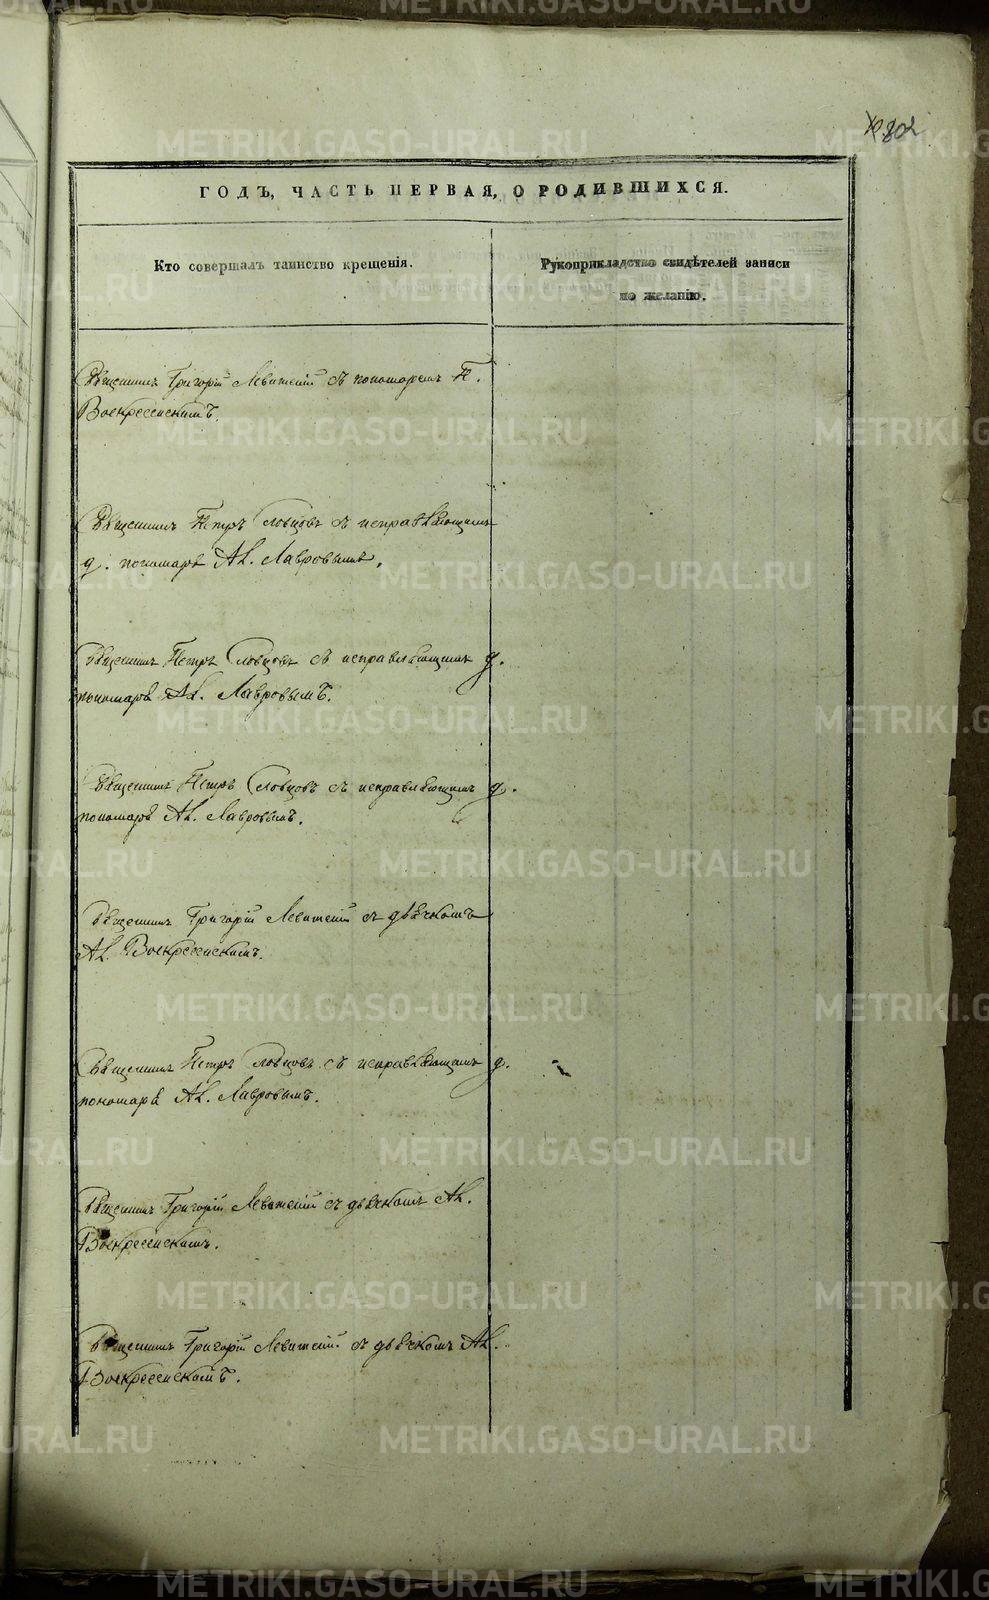 802
ГОДЪ, ЧАСТЬ ПЕРВАЯ, О РОДИВШИХСЯ.
Кто совершалъ таинство крещенія.
Рукоприкладство свидѣтелей записи
по желанію.
Священникъ Григорій Левитскій съ пономаремъ П.
Воскресенскимъ.
Священникъ Петръ Словцовъ съ исправляющимъ
д. пономаря Ал. Лавровымъ.
Священникъ Петръ Словцовъ съ исправляющимъ д.
пономаря Ал. Лавровымъ.
Священникъ Петръ Словцовъ съ исправляющимъ д.
пономаря Ал. Лавровымъ.
Священникъ Григорій Левитскій съ дьячкомъ
Ал. Воскресенскимъ.
Священникъ Петръ Словцовъ съ исправляющимъ д.
пономаря Ал. Лавровымъ.
Священникъ Григорій Левитскій съ дьячкомъ Ал.
Воскресенскимъ.
Священникъ Григорій Левитскій съ дьячкомъ Ал.
Воскресенскимъ.
METRIKI.GASO-URAL.RU